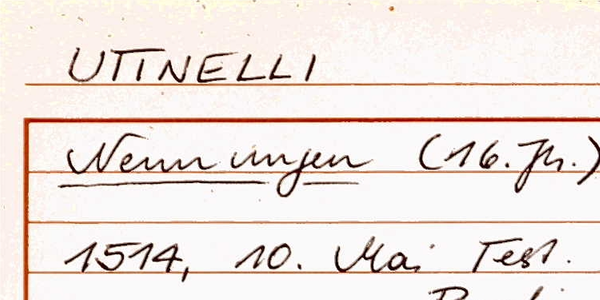 UTINELLI
Nennungen (16. Jh.)
1514, 10. Mai Test.